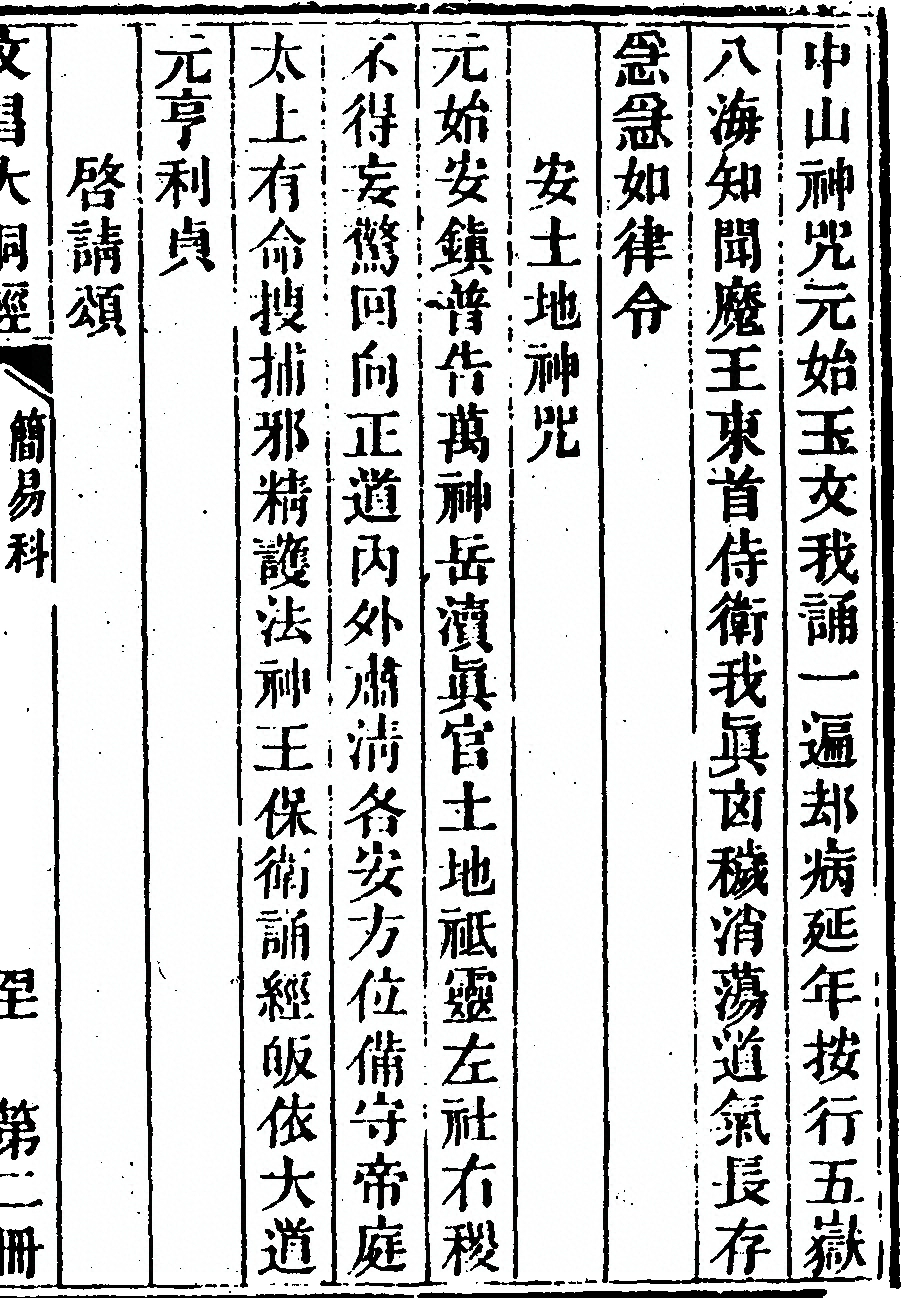 中山神咒元始玉文我誦一遍却病延年按行五嶽
八海知聞魔王東首侍衛我眞凶穢消蕩道氣長存
急急如律令
安土地神咒
元始安鎭普告萬神岳瀆眞官土地祇靈左社右稷
不得妄驚回向正道內外肅淸各安方位備守帝庭
太上有命搜捕邪精護法神王保衛誦經皈依大道
元亨利貞
啓請頌
文昌大洞經 簡易科 第二冊